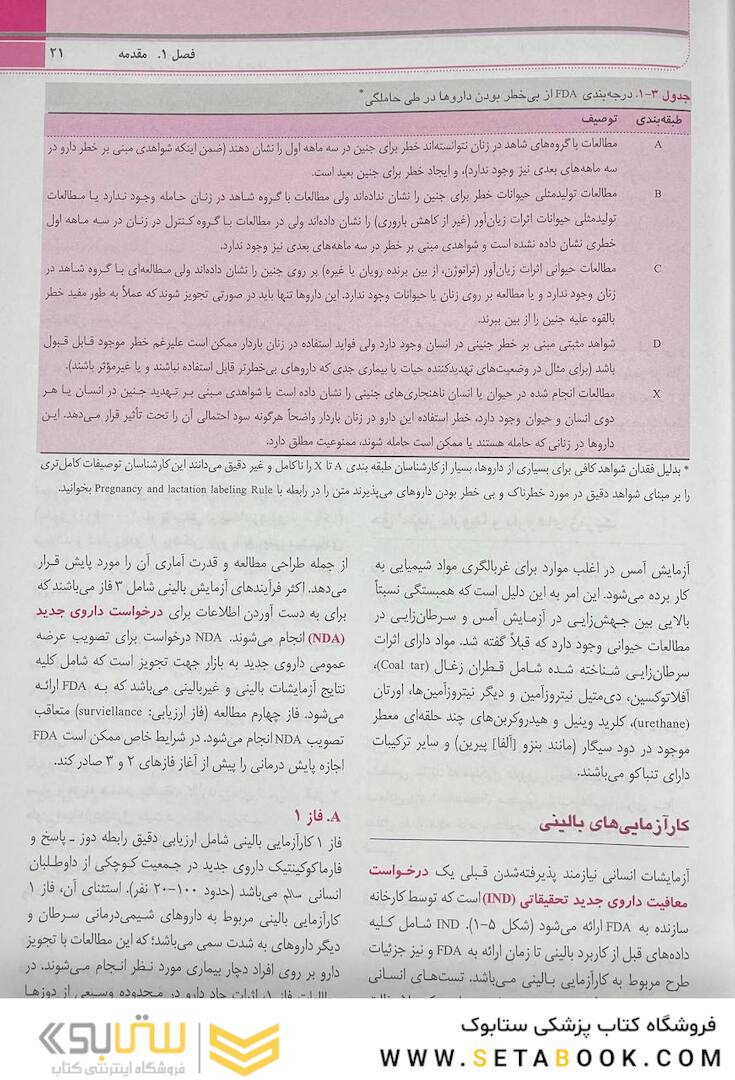 فصل ۱. مقدمه ۲۱
جدول ۳-۱. درجه‌بندی FDA از بی‌خطر بودن داروها در طی حاملگی*
طبقه‌بندی توصیف
A مطالعات با گروه‌های شاهد در زنان نتوانسته‌اند خطر برای جنین در سه ماهه اول را نشان دهند (ضمن اینکه شواهدی مبنی بر خطر دارو در
سه ماهه‌های بعدی نیز وجود ندارد)، و ایجاد خطر برای جنین بعید است.
B مطالعات تولیدمثلی حیوانات خطر برای جنین را نشان نداده‌اند ولی مطالعات با گروه شاهد در زنان حامله وجود ندارد یا مطالعات
تولیدمثلی حیوانات اثرات زیان‌آور (غیر از کاهش باروری) را نشان داده‌اند ولی در مطالعات با گروه کنترل در زنان در سه ماهه اول
خطری نشان داده نشده است و شواهدی مبنی بر خطر در سه ماهه‌های بعدی نیز وجود ندارد.
C مطالعات حیوانی اثرات زیان‌آور (تراتوژن، از بین برنده رویان یا غیره) بر روی جنین را نشان داده‌اند ولی مطالعه‌ای با گروه شاهد در
زنان وجود ندارد و یا مطالعه بر روی زنان یا حیوانات وجود ندارد. این داروها تنها باید در صورتی تجویز شوند که عملاً به طور مفید خطر
بالقوه علیه جنین را از بین ببرند.
D شواهد مثبتی مبنی بر خطر جنینی در انسان وجود دارد ولی فواید استفاده در زنان باردار ممکن است علیرغم خطر موجود قابل قبول
باشد (برای مثال در وضعیت‌های تهدیدکننده حیات یا بیماری جدی که داروهای بی‌خطرتر قابل استفاده نباشند و یا غیرمؤثر باشند).
X مطالعات انجام شده در حیوان یا انسان ناهنجاری‌های جنینی را نشان داده است یا شواهدی مبنی بر تهدید جنین در انسان یا هر
دوی انسان و حیوان وجود دارد، خطر استفاده این دارو در زنان باردار واضحاً هرگونه سود احتمالی آن را تحت تأثیر قرار می‌دهد. این
داروها در زنانی که حامله هستند یا ممکن است حامله شوند، ممنوعیت مطلق دارد.
* بدلیل فقدان شواهد کافی برای بسیاری از داروها، بسیار از کارشناسان طبقه بندی A تا X را ناکامل و غیر دقیق می‌دانند این کارشناسان توصیفات کامل‌تری
را بر مبنای شواهد دقیق در مورد خطرناک و بی خطر بودن داروهای می‌پذیرند متن را در رابطه با Pregnancy and lactation labeling Rule بخوانید.
آزمایش آمس در اغلب موارد برای غربالگری مواد شیمیایی به
کار برده می‌شود. این امر به این دلیل است که همبستگی نسبتاً
بالایی بین جهش‌زایی در آزمایش آمس و سرطان‌زایی در
مطالعات حیوانی وجود دارد که قبلاً گفته شد. مواد دارای اثرات
سرطان‌زایی شناخته شده شامل قطران زغال (Coal tar)،
آفلاتوکسین، دی‌متیل نیتروزآمین و دیگر نیتروزآمین‌ها، اورتان
(urethane)، کلرید وینیل و هیدروکربن‌های چند حلقه‌ای معطر
موجود در دود سیگار (مانند بنزو [آلفا] پیرین) و سایر ترکیبات
دارای تنباکو می‌باشند.
کارآزمایی‌های بالینی
آزمایشات انسانی نیازمند پذیرفته‌شدن قبلی یک درخواست
معافیت داروی جدید تحقیقاتی (IND) است که توسط کارخانه
سازنده به FDA ارائه می‌شود (شکل ۵-۱). IND شامل کلیه
داده‌های قبل از کاربرد بالینی تا زمان ارائه به FDA و نیز جزئیات
طرح مربوط به کارآزمایی بالینی می‌باشد. تست‌های انسانی
از جمله طراحی مطالعه و قدرت آماری آن را مورد پایش قرار
می‌دهد. اکثر فرآیندهای آزمایش بالینی شامل ۳ فاز می‌باشند که
برای به دست آوردن اطلاعات برای درخواست داروی جدید
(NDA) انجام می‌شوند. NDA درخواست برای تصویب عرضه
عمومی داروی جدید به بازار جهت تجویز است که شامل کلیه
نتایج آزمایشات بالینی و غیربالینی می‌باشد که به FDA ارائه
می‌شود. فاز چهارم مطالعه (فاز ارزیابی: surviellance) متعاقب
تصویب NDA انجام می‌شود. در شرایط خاص ممکن است FDA
اجازه پایش درمانی را پیش از آغاز فازهای ۲ و ۳ صادر کند.
A. فاز ۱
فاز ۱ کارآزمایی بالینی شامل ارزیابی دقیق رابطه دوز ـ پاسخ و
فارماکوکینتیک داروی جدید در جمعیت کوچکی از داوطلبان
انسانی سالم می‌باشد (حدود ۱۰۰-۲۰ نفر). استثنای آن، فاز ۱
کارآزمایی بالینی مربوط به داروهای شیمی‌درمانی سرطان و
دیگر داروهای به شدت سمی می‌باشد؛ که این مطالعات با تجویز
دارو بر روی افراد دچار بیماری مورد نظر انجام می‌شوند. در
فاز ۱، اثرات حاد دارو در محدوده وسیعی از دوزها
فروشگاه کتاب پزشکی ستابوک
WWW.SETABOOK.COM
ستابوک
فروشگاه اینترنتی کتاب